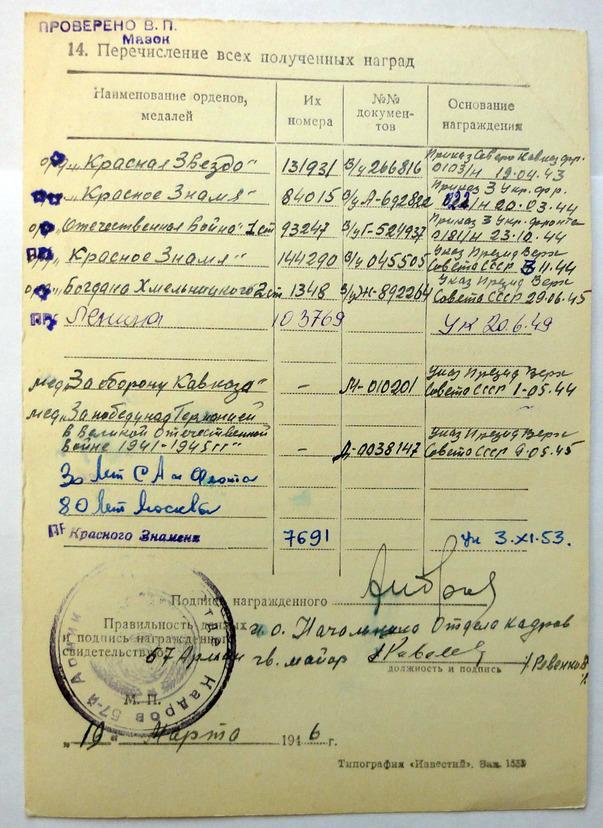 ПРОВЕРЕНО В. П.
Мазок
14. Перечисление всех полученных наград
Наименование орденов, медалей
Их номера
№№ документов
Основание награждения
„Красная Звезда" 131931 В/у 266816 Приказ Северо Кавказ. фр. 0103/н 19.04.43
„Красное Знамя" 84015 В/у А-692822 Приказ 3 Укр. фр. 022/н 20.03.44
„Отечественная Война" 1 ст 93247 В/у Г-524937 Приказ 3 Укр. фронта 0184/н 23.10.44
„Красное Знамя" 144290 В/у 045505 Указ Презид Верх Совета СССР 3.11.44
Богдана Хмельницкого 2 ст 1348 В/у Ж-892204 Указ Презид Верх Совета СССР 29.06.45
Ленина 103769 Ук 20.6.49
мед „За оборону Кавказа" – М-010201 Указ Презид Верх Совета СССР 1-05.44
мед „За победу над Германией
в Великой Отечественной
Войне 1941-1945 гг" – Д-0038147 Указ Презид Верх Совета СССР 9.05.45
30 лет СА и Флота
80 лет Москвы
Красного Знамени 7691 Ук 3.XI.53.
Подпись награжденного
Правильность данных и подпись награжденного свидетельствую
Начальника Отдела кадров
57 Армии гв. майор
/Ревенков/
должность и подпись
Отдел Кадров 57-й Армии
М. П.
„19" Марта 1946 г.
Типография «Известий». Зак. 1532